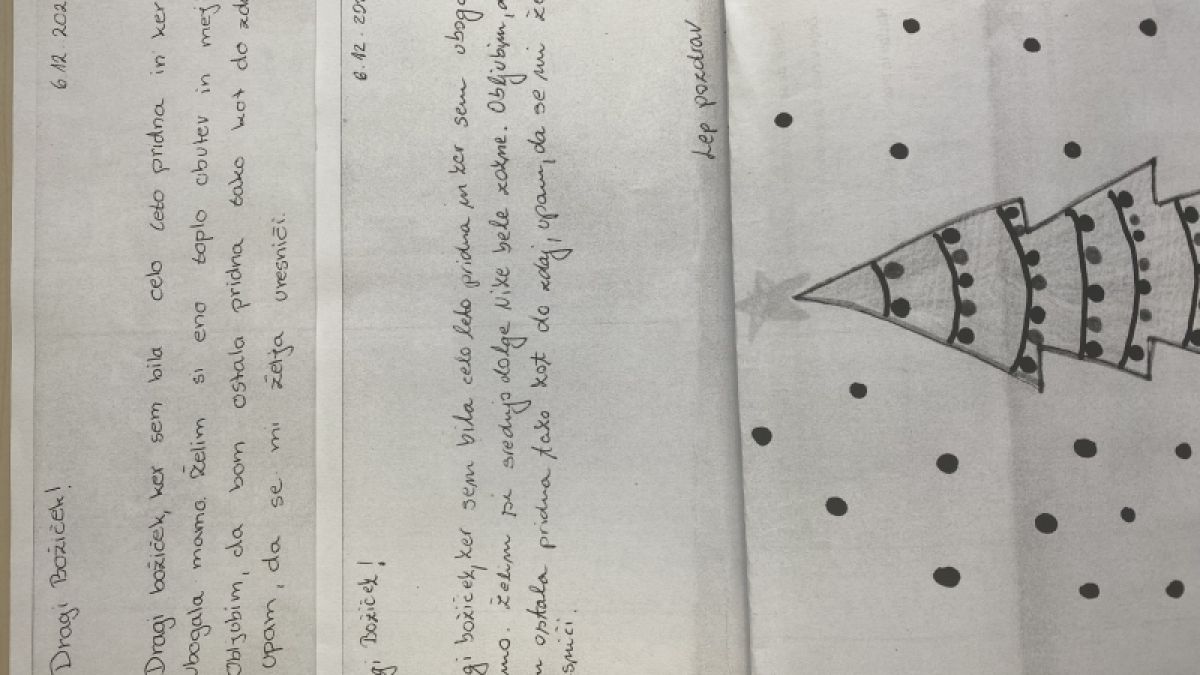 6.12 202
Dragi Božiček!
Dragi božiček, ker sem bila celo leto pridna in ker
ubogala mamo. Želim si eno toplo obutev in mej
Obljubim, da bom ostala pridna tako kot do zda
Upam, da se mi želja uresniči.
6.12.20
gi Božiček!
gi božiček, ker sem bila celo leto pridna in ker sem uboga
mo. Želim si srednjo dolge Nike bele zokne. Obljubim,
m ostala pridna tako kot do zdaj, upam, da se mi že
sniči.
Lep pozdrav